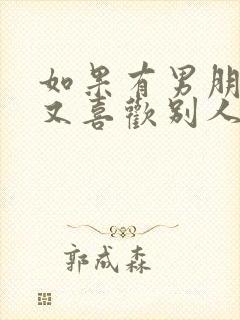 如果有男朋
又喜歡別人
郭成森